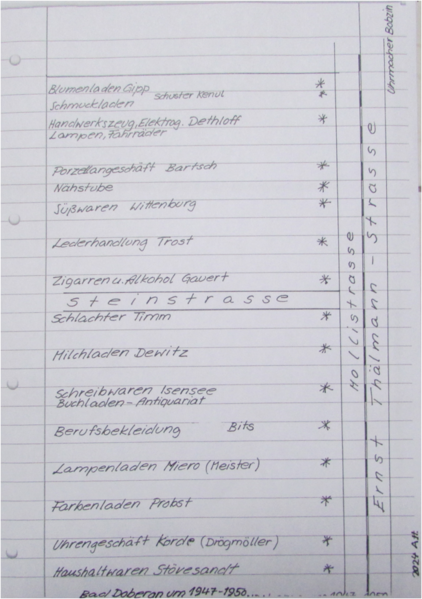 Uhrmacher Babzin
Blumenladen Gipp
Schuster Kenul
Schmuckladen
Handwerkszeug, Elektrog. Dethloff
Lampen, Fahrräder
Porzellangeschäft Bartsch
Nähstube
Süßwaren Wittenburg
Lederhandlung Trost
Zigarren u. Alkohol Gauert
Steinstrasse
Schlachter Timm
Milchladen Dewitz
Schreibwaren Isensee
Buchladen - Antiquariat
Berufsbekleidung Bits
Lampenladen Miero (Meister)
Farbenladen Probst
Uhrengeschäft Korde (Drögmöller)
Haushaltwaren Stövesandt
Bad Doberan um 1947-1950
Mollistrasse
Ernst Thälmann - Strasse
2024 A.H.